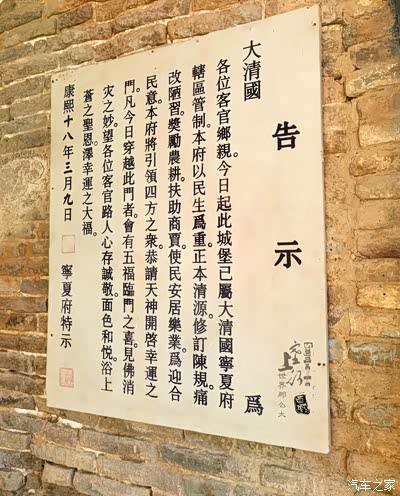 告示
大清國 為
各位客官鄉親。今日起此城堡已屬大清國寧夏府
轄區管制。本府以民生爲重。正本清源。修訂陳規。痛
改陋習。獎勵農耕。扶助商賈。使民安居樂業。爲迎合
民意。本府將引領四方之衆。恭請天神開啓幸運之
門。凡今日穿越此門者。會有五福臨門之喜。見佛消
灾之妙。望各位客官路人心存誠敬。面色和悦。浴上
蒼之聖恩。澤幸運之大福。
康熙十八年三月九日 寧夏府特示
世界那么大
汽车之家